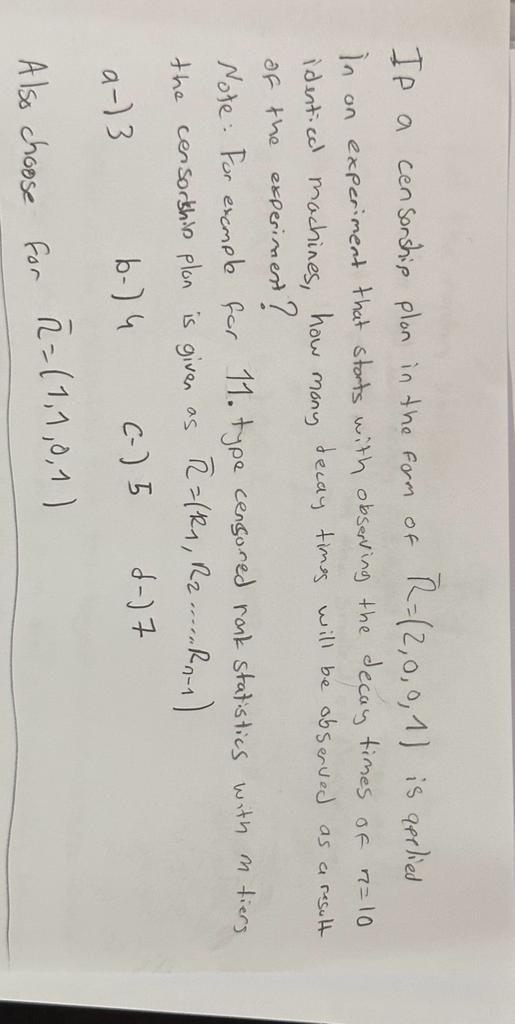 If a censorship plan in the form of R̄=(2,0,0,1) is applied
in an experiment that starts with observing the decay times of n=10
identical machines, how many decay times will be observed as a result
of the experiment?
Note: For example for 11. type censored rank statistics with m tiers
the censorship plan is given as R̄=(R1, R2 ...... Rm-1)
a-) 3 b-) 4 c-) 5 d-) 7
Also choose for R̄=(1,1,0,1)